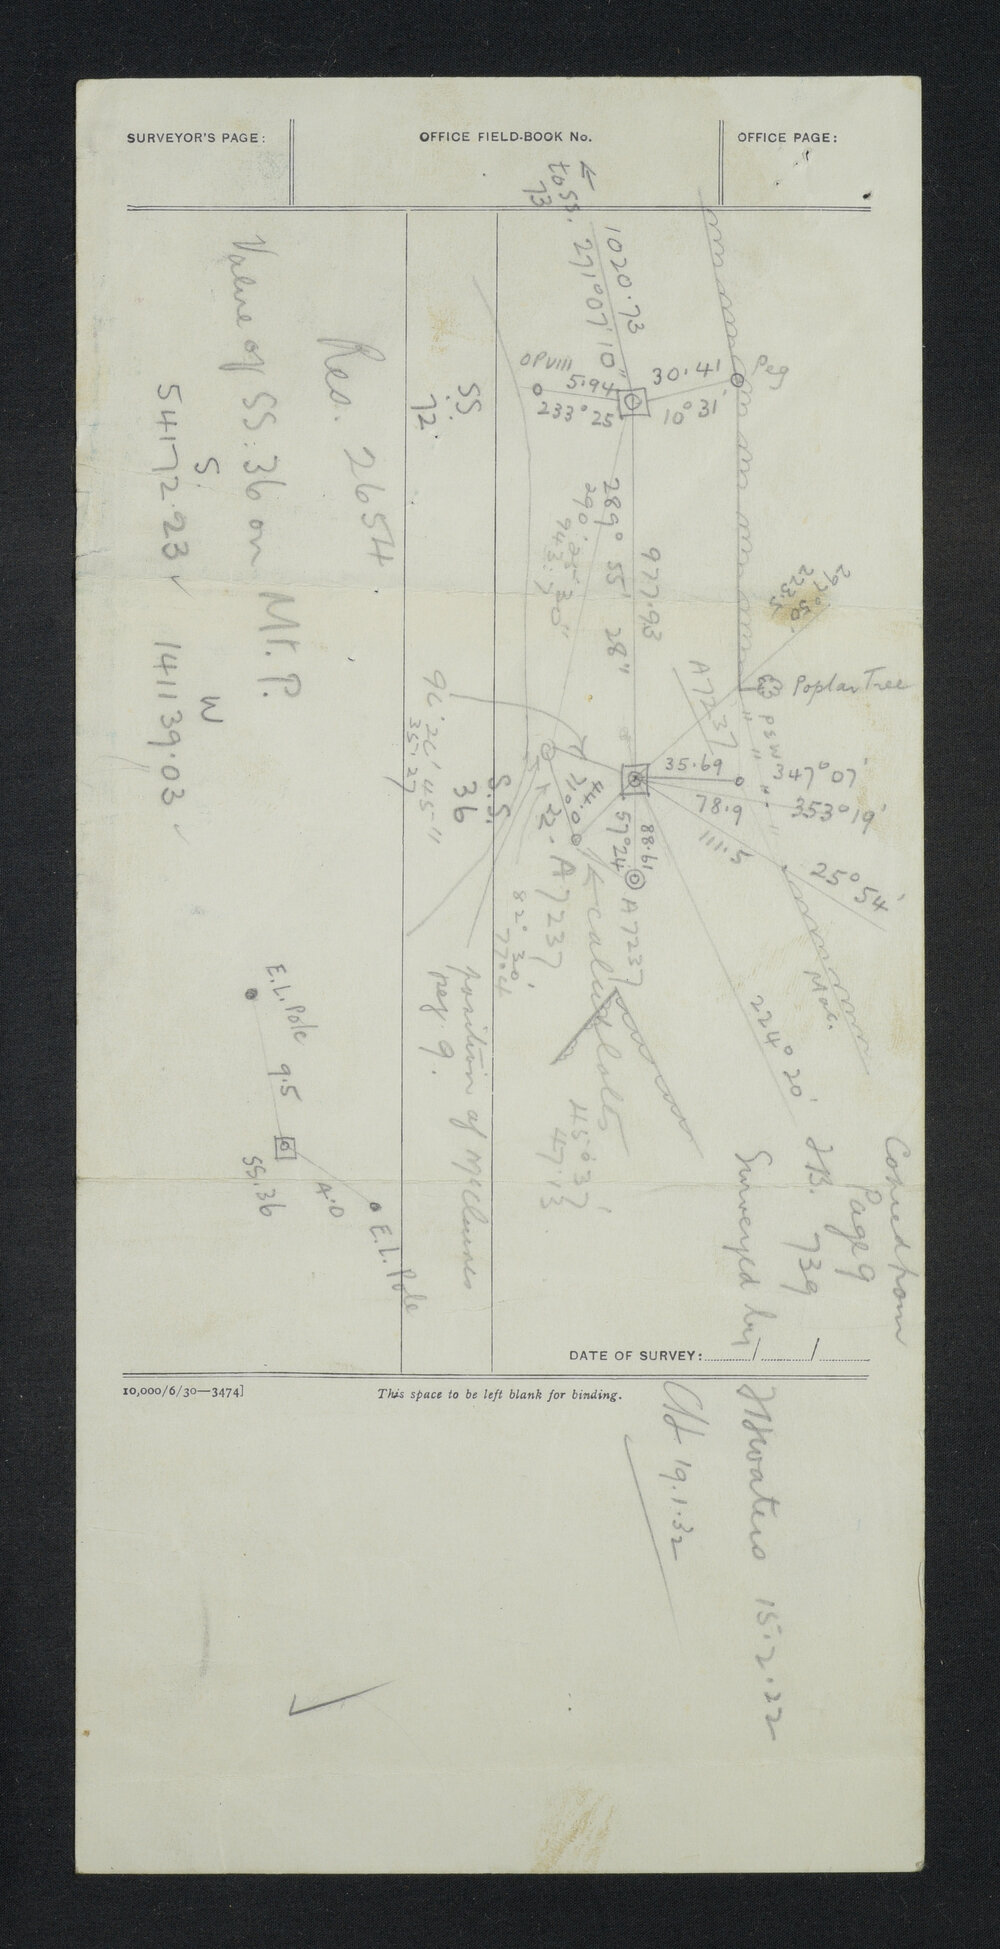 SURVEYOR'S PAGE:
OFFICE FIELD-BOOK No.
OFFICE PAGE:
to SS. 73
1020.73
271° 07' 10"
OPVIII
5.94
233° 25'
30.41
10° 31'
Peg
SS.
72
Res. 2654
Value of SS. 36 on Mt. P.
S.
W
54172.23
141139.03
977.93
289° 55' 28"
223.5
Poplar Tree
A7237
35.69
347° 07'
78.9
353° 19'
111.5
25° 54'
44.0
88.61
57° 24'
A7237
S.S.
36
35.27
A7237
82° 30'
77.4
position of McClures
peg 9.
Mac.
224° 20'
45° 37'
47.13
E.L. Pole
9.5
SS.36
4.0
E.L. Pole
Copied from
Page 9
F.B. 739
Surveyed by
15.2.22
19.1.32
DATE OF SURVEY: / /
10,000/6/30—3474]
This space to be left blank for binding.